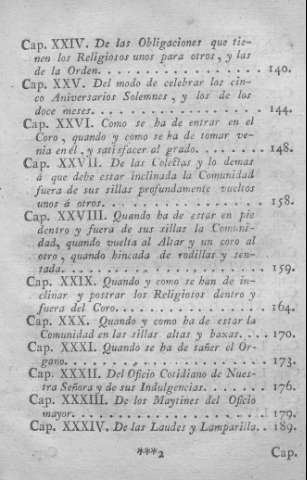 Cap. XXIV. De las Obligaciones que tie-
nen los Religiosos unos para otros, y las
de la Orden. . . . . . . . . . . . . . . 140.
Cap. XXV. Del modo de celebrar los cin-
co Aniversarios Solemnes, y los de los
doce meses. . . . . . . . . . . . . . . 144.
Cap. XXVI. Como se ha de entrar en el
Coro, quando y como se ha de tomar ve-
nia en él, y satisfacer al grado. . . . . . 148.
Cap. XXVII. De las Colectas y lo demas
á que debe estar inclinada la Comunidad
fuera de sus sillas profundamente vueltos
unos á otros. . . . . . . . . . . . . . . 158.
Cap. XXVIII. Quando ha de estar en pie
dentro y fuera de sus sillas la Comuni-
dad, quando vuelta al Altar y un coro al
otro, quando hincada de rodillas y sen-
tada. . . . . . . . . . . . . . . . . . 159.
Cap. XXIX. Quando y como se han de in-
clinar y postrar los Religiosos dentro y
fuera del Coro. . . . . . . . . . . . . . 164.
Cap. XXX. Quando y como ha de estar la
Comunidad en las sillas altas y baxas. . . . 170.
Cap. XXXI. Quando se ha de tañer el Or-
gano. . . . . . . . . . . . . . . . . . 173.
Cap. XXXII. Del Oficio Cotidiano de Nues-
tra Señora y de sus Indulgencias. . . . . . 176.
Cap. XXXIII. De los Maytines del Oficio
mayor. . . . . . . . . . . . . . . . . 179.
Cap. XXXIV. De las Laudes y Lamparilla. . 189.
***2 Cap.